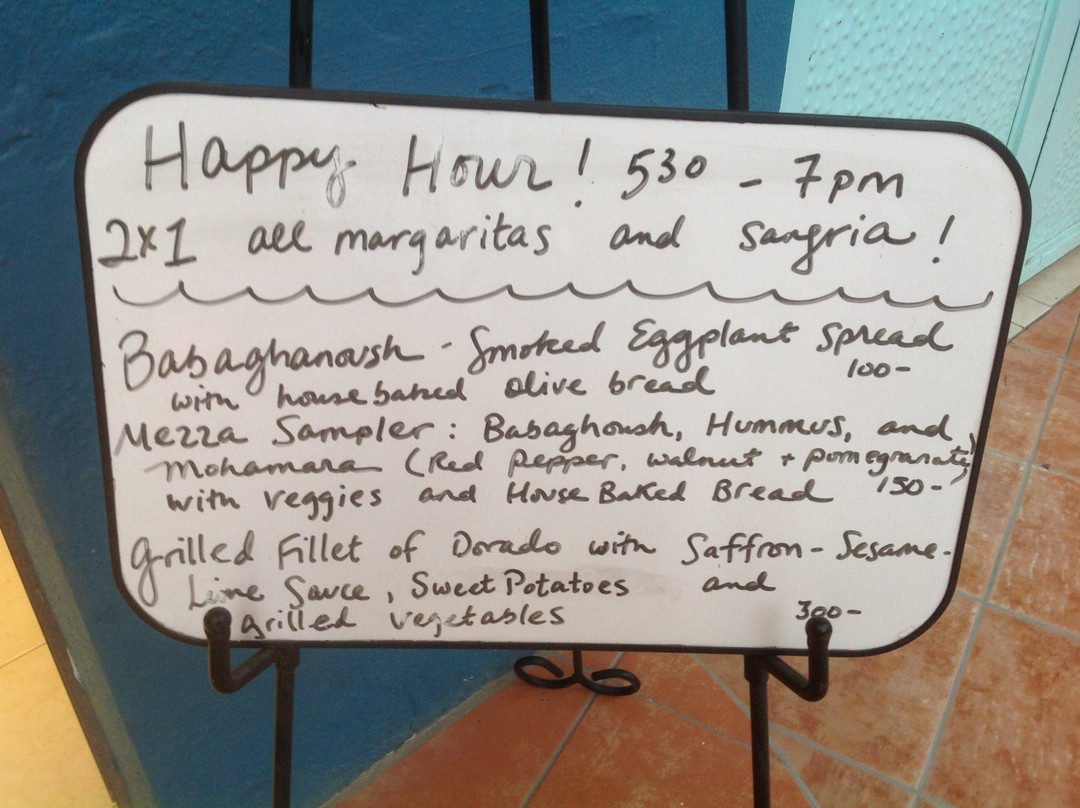 Happy Hour! 530 - 7pm
2x1 all margaritas and sangria!
Babaghanoush - Smoked Eggplant Spread
with housebaked olive bread 100-
Mezza Sampler: Babaghoush, Hummus, and
Mohamara (Red pepper, walnut + pomegranate)
with veggies and House Baked Bread 150-
grilled Fillet of Dorado with Saffron-Sesame-
Lime Sauce, Sweet Potatoes and
grilled vegetables 300-